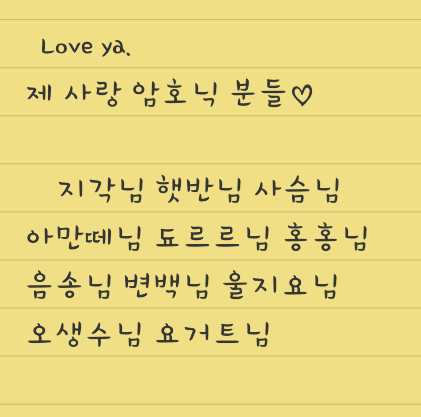 Love ya.
제 사랑 암호닉 분들♡
지각님 햇반님 사슴님
아만떼님 됴르르님 홍홍님
음송님 변백님 울지요님
오생수님 요거트님